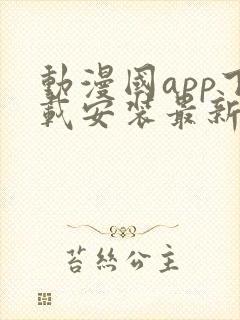 動漫國app下
載安裝最新
苔絲公主